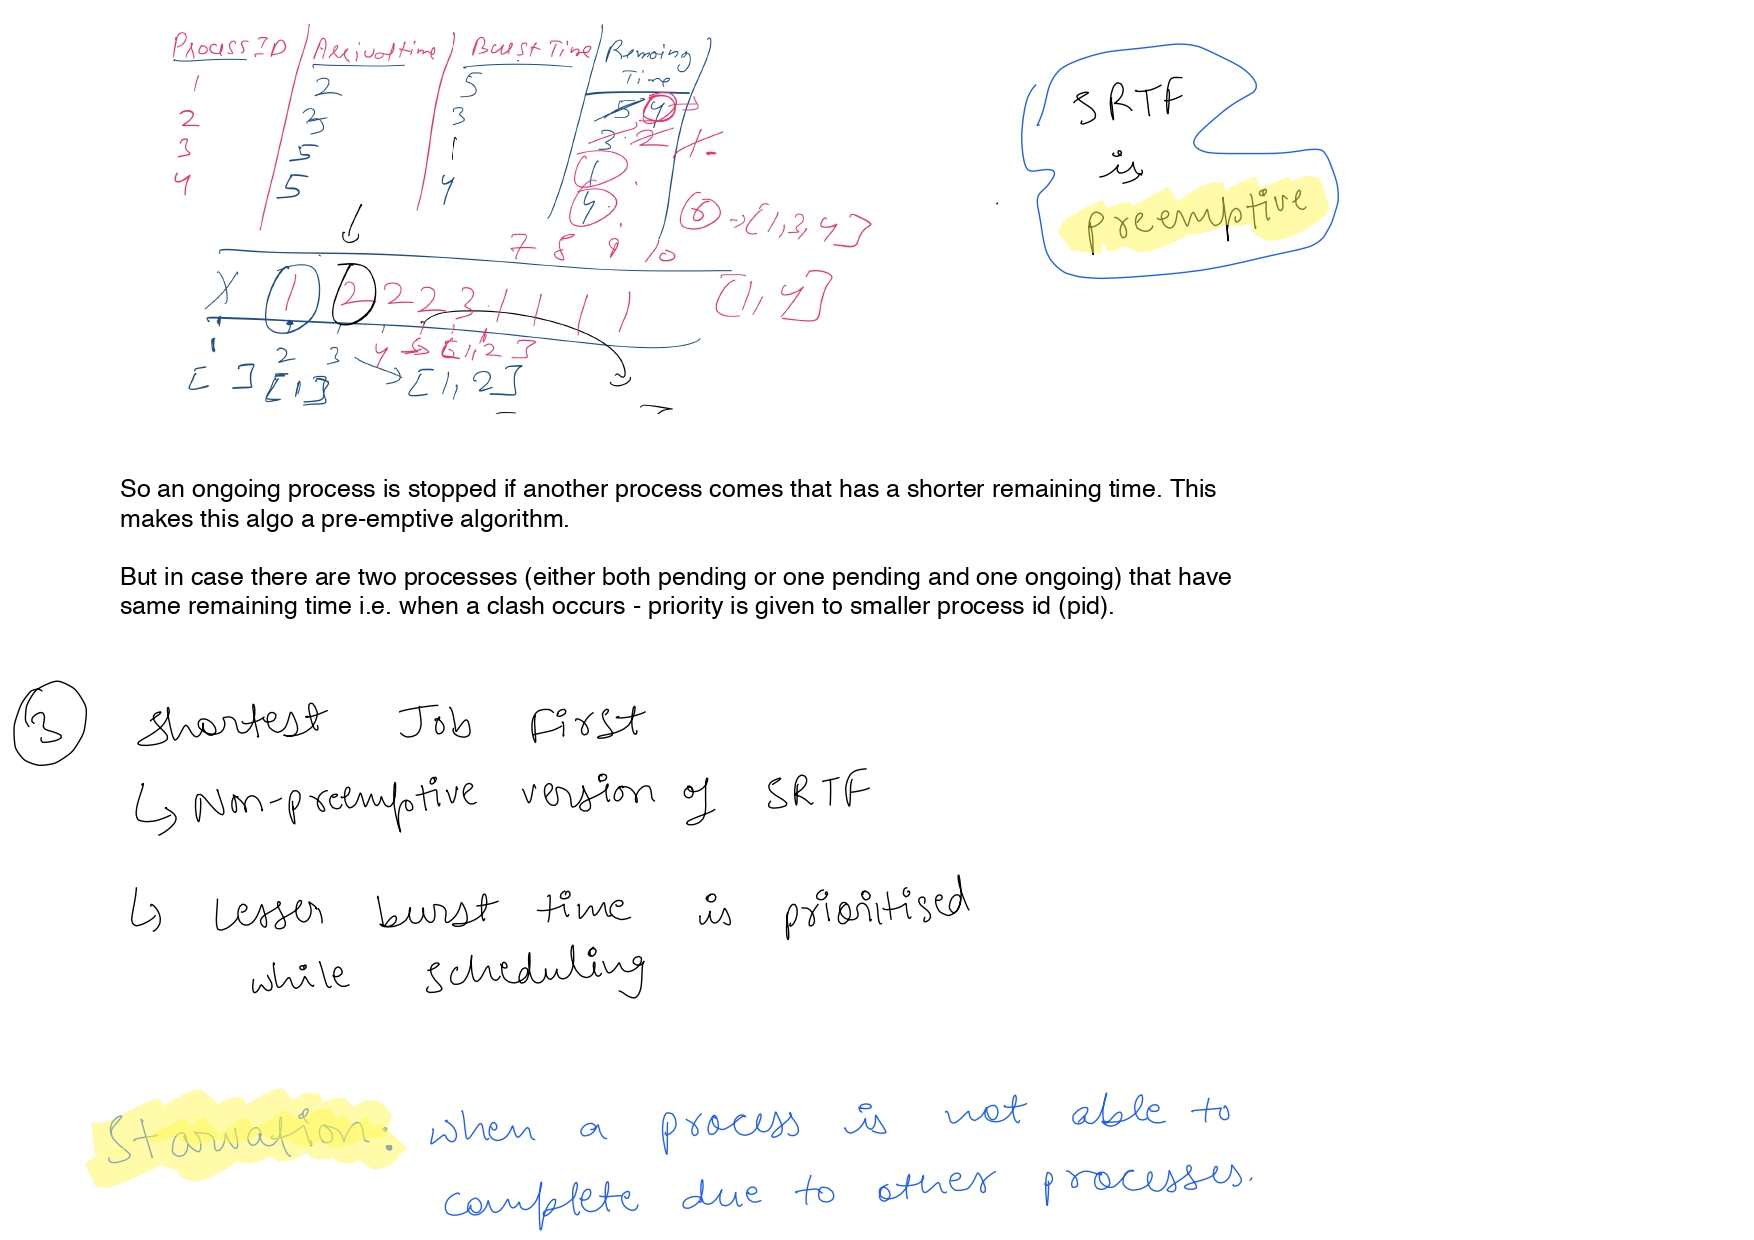 Process ID Arrival time Burst Time Remaing
Time
1 2 5 5 4
2 3 3 3 2
3 5 1 1
4 5 4 4
6 → [1, 3, 4]
7 8 9 10
X 1 2 2 2 3 1 1 1 1 [1, 4]
1 2 3 4 5 6
[ ] [1] [1, 2]
SRTF
is
preemptive
So an ongoing process is stopped if another process comes that has a shorter remaining time. This
makes this algo a pre-emptive algorithm.
But in case there are two processes (either both pending or one pending and one ongoing) that have
same remaining time i.e. when a clash occurs - priority is given to smaller process id (pid).
3 Shortest Job First
↳ Non-preemptive version of SRTF
↳ Lesser burst time is prioritised
while scheduling
Starvation: when a process is not able to
complete due to other processes.